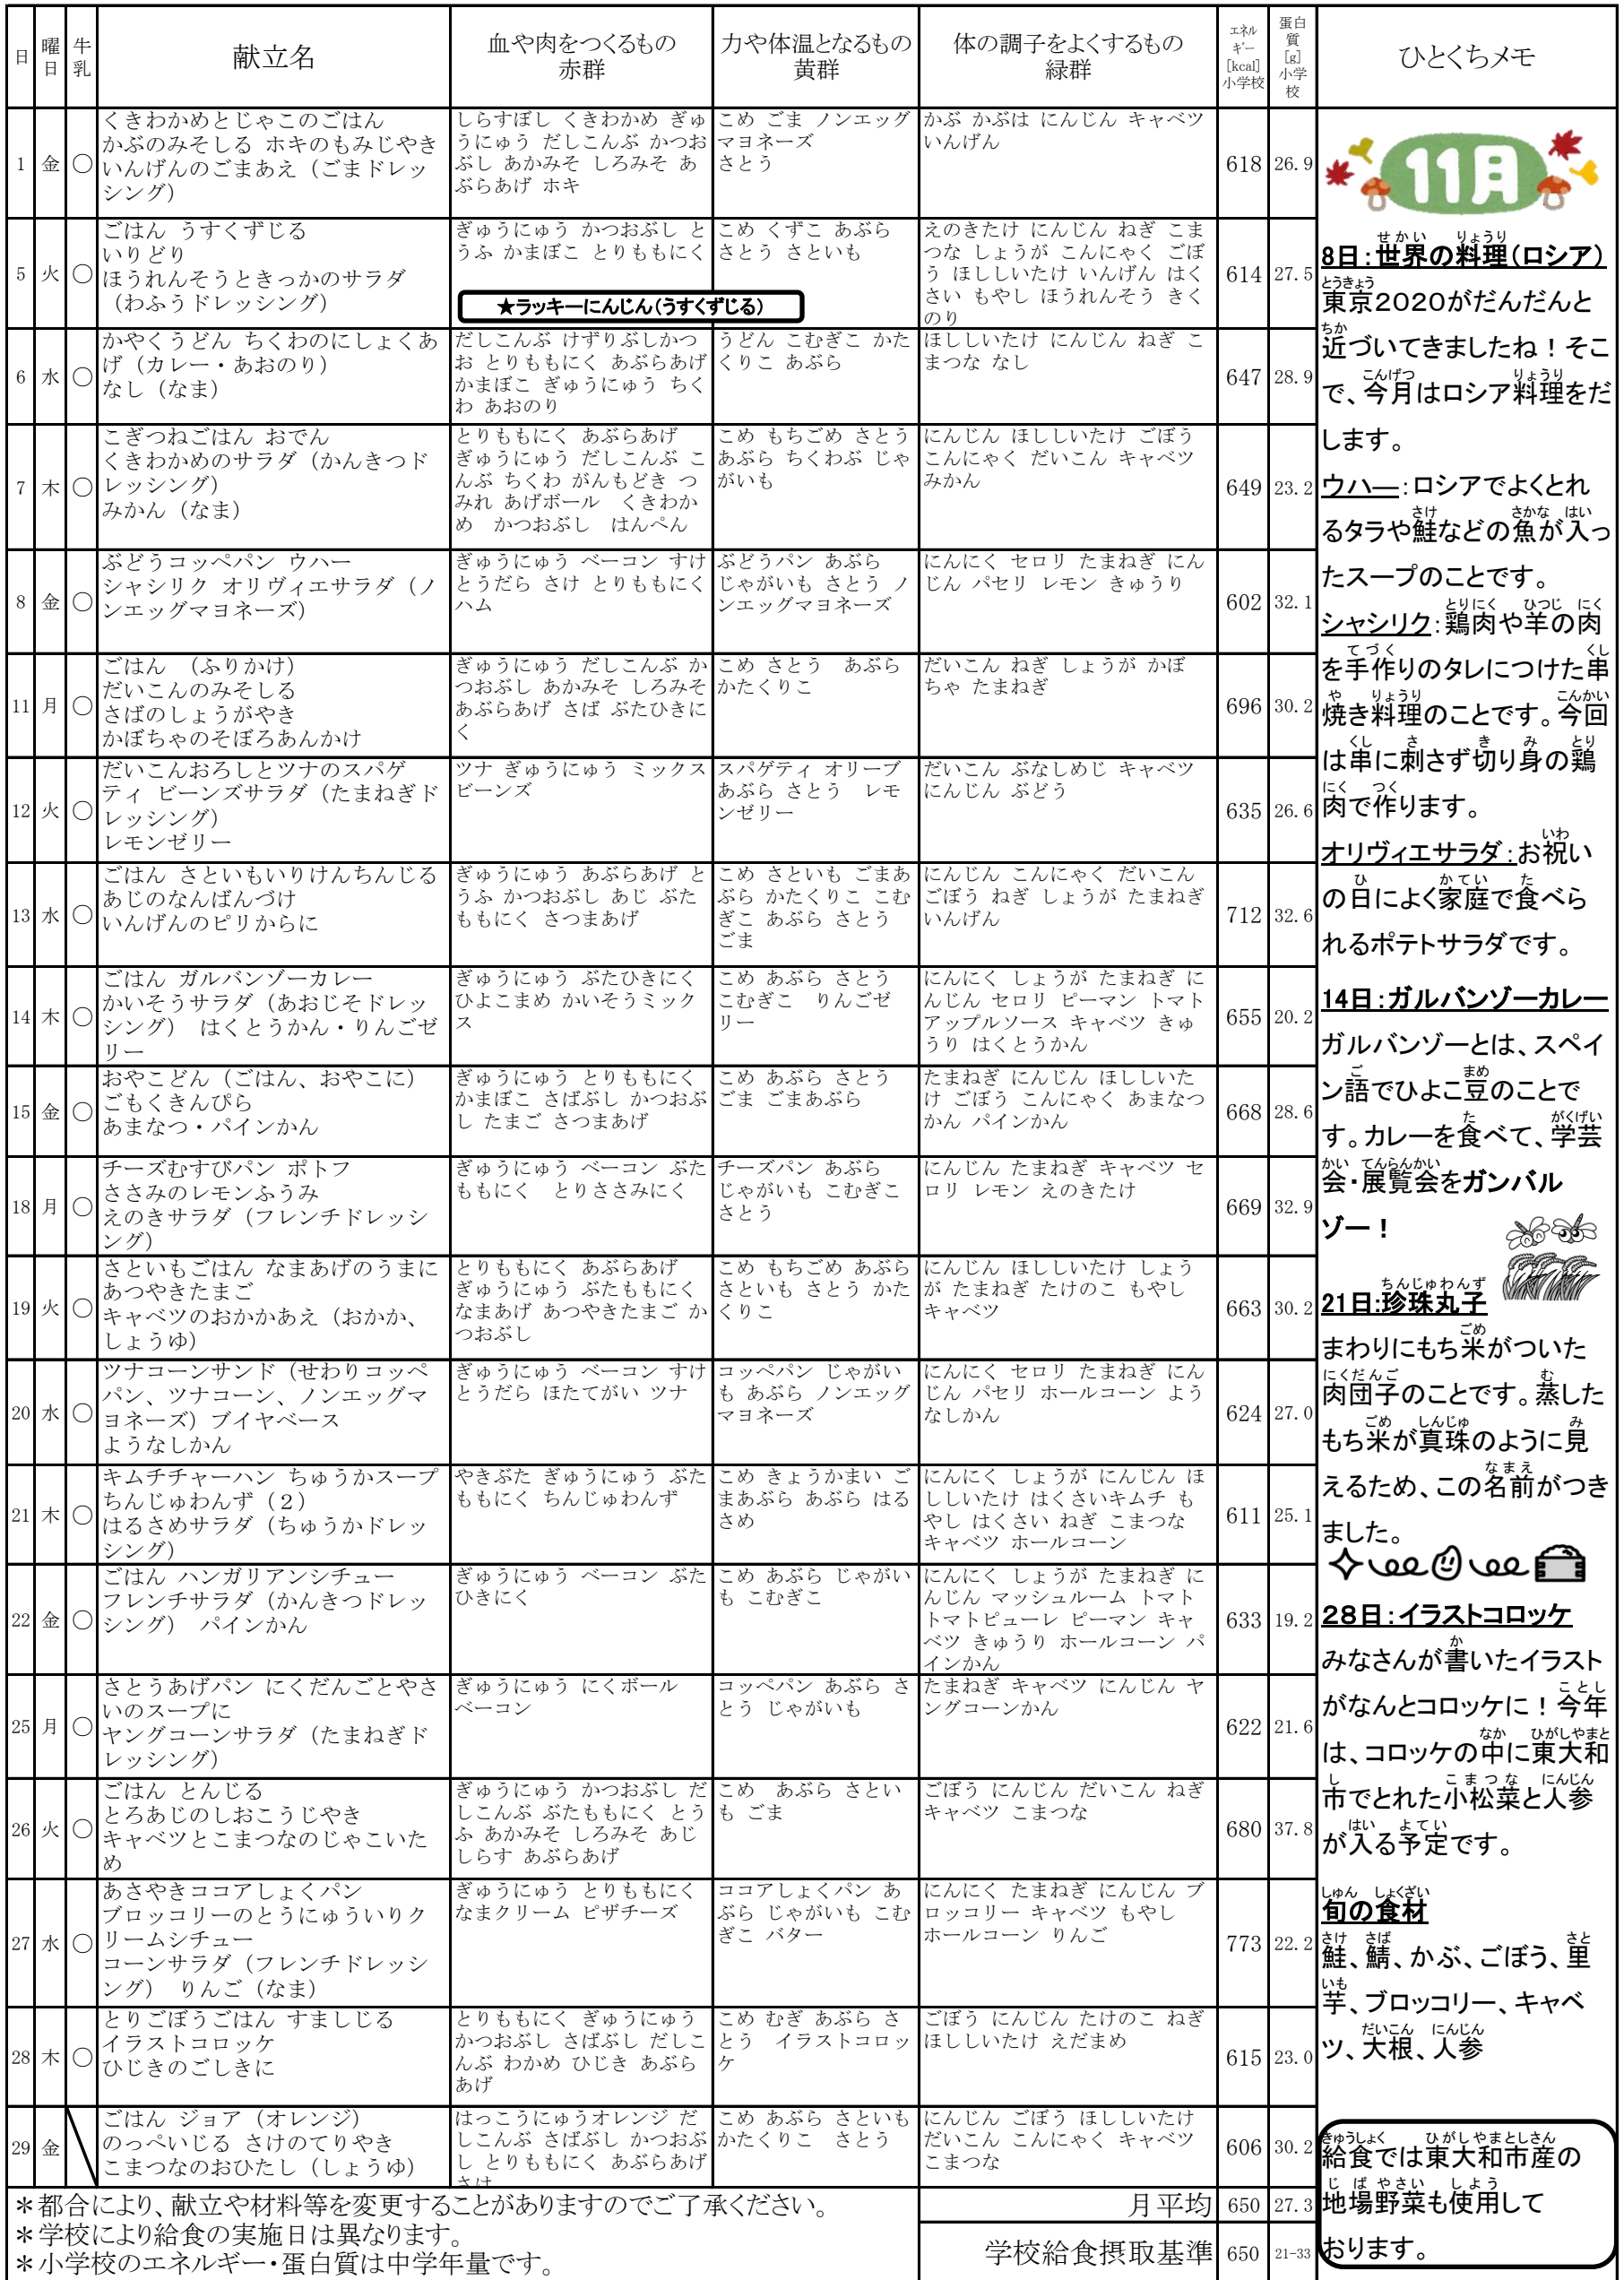 日 曜日 牛乳 献立名 血や肉をつくるもの 赤群 力や体温となるもの 黄群 体の調子をよくするもの 緑群 エネルギー [kcal] 小学校 蛋白質 [g] 小学校 ひとくちメモ
1 金 ○
くきわかめとじゃこのごはん
かぶのみそしる ホキのもみじやき
いんげんのごまあえ（ごまドレッ
シング）
しらすぼし くきわかめ ぎゅ
うにゅう だしこんぶ かつお
ぶし あかみそ しろみそ あ
ぶらあげ ホキ
こめ ごま ノンエッグ
マヨネーズ
さとう
かぶ かぶは にんじん キャベツ
いんげん
618 26.9
5 火 ○
ごはん うすくずじる
いりどり
ほうれんそうときっかのサラダ
（わふうドレッシング）
ぎゅうにゅう かつおぶし と
うふ かまぼこ とりももにく
★ラッキーにんじん（うすくずじる）
こめ くずこ あぶら
さとう さといも
えのきたけ にんじん ねぎ こま
つな しょうが こんにゃく ごぼ
う ほししいたけ いんげん はく
さい もやし ほうれんそう きく
のり
614 27.5
6 水 ○
かやくうどん ちくわのにしょくあ
げ（カレー・あおのり）
なし（なま）
だしこんぶ けずりぶしかつ
お とりももにく あぶらあげ
かまぼこ ぎゅうにゅう ちく
わ あおのり
うどん こむぎこ かた
くりこ あぶら
ほししいたけ にんじん ねぎ こ
まつな なし
647 28.9
7 木 ○
こぎつねごはん おでん
くきわかめのサラダ（かんきつド
レッシング）
みかん（なま）
とりももにく あぶらあげ
ぎゅうにゅう だしこんぶ こ
んぶ ちくわ がんもどき つ
みれ あげボール くきわか
め かつおぶし はんぺん
こめ もちごめ さとう
あぶら ちくわぶ じゃ
がいも
にんじん ほししいたけ ごぼう
こんにゃく だいこん キャベツ
みかん
649 23.2
8 金 ○
ぶどうコッペパン ウハー
シャシリク オリヴィエサラダ（ノ
ンエッグマヨネーズ）
ぎゅうにゅう ベーコン すけ
とうだら さけ とりももにく
ハム
ぶどうパン あぶら
じゃがいも さとう ノ
ンエッグマヨネーズ
にんにく セロリ たまねぎ にん
じん パセリ レモン きゅうり
602 32.1
11 月 ○
ごはん （ふりかけ）
だいこんのみそしる
さばのしょうがやき
かぼちゃのそぼろあんかけ
ぎゅうにゅう だしこんぶ か
つおぶし あかみそ しろみそ
あぶらあげ さば ぶたひきに
く
こめ さとう あぶら
かたくりこ
だいこん ねぎ しょうが かぼ
ちゃ たまねぎ
696 30.2
12 火 ○
だいこんおろしとツナのスパゲ
ティ ビーンズサラダ（たまねぎド
レッシング）
レモンゼリー
ツナ ぎゅうにゅう ミックス
ビーンズ
スパゲティ オリーブ
あぶら さとう レモ
ンゼリー
だいこん ぶなしめじ キャベツ
にんじん ぶどう
635 26.6
13 水 ○
ごはん さといもいりけんちんじる
あじのなんばんづけ
いんげんのピリからに
ぎゅうにゅう あぶらあげ と
うふ かつおぶし あじ ぶた
ももにく さつまあげ
こめ さといも ごまあ
ぶら かたくりこ こむ
ぎこ あぶら さとう
ごま
にんじん こんにゃく だいこん
ごぼう ねぎ しょうが たまねぎ
いんげん
712 32.6
14 木 ○
ごはん ガルバンゾーカレー
かいそうサラダ（あおじそドレッ
シング） はくとうかん・りんごゼ
リー
ぎゅうにゅう ぶたひきにく
ひよこまめ かいそうミック
ス
こめ あぶら さとう
こむぎこ りんごゼ
リー
にんにく しょうが たまねぎ に
んじん セロリ ピーマン トマト
アップルソース キャベツ きゅ
うり はくとうかん
655 20.2
15 金 ○
おやこどん（ごはん、おやこに）
ごもくきんぴら
あまなつ・パインかん
ぎゅうにゅう とりももにく
かまぼこ さばぶし かつおぶ
し たまご さつまあげ
こめ あぶら さとう
ごま ごまあぶら
たまねぎ にんじん ほししいた
け ごぼう こんにゃく あまなつ
かん パインかん
668 28.6
18 月 ○
チーズむすびパン ポトフ
ささみのレモンふうみ
えのきサラダ（フレンチドレッシ
ング）
ぎゅうにゅう ベーコン ぶた
ももにく とりささみにく
チーズパン あぶら
じゃがいも こむぎこ
さとう
にんじん たまねぎ キャベツ セ
ロリ レモン えのきたけ
669 32.9
19 火 ○
さといもごはん なまあげのうまに
あつやきたまご
キャベツのおかかあえ（おかか、
しょうゆ）
とりももにく あぶらあげ
ぎゅうにゅう ぶたももにく
なまあげ あつやきたまご か
つおぶし
こめ もちごめ あぶら
さといも さとう かた
くりこ
にんじん ほししいたけ しょう
が たまねぎ たけのこ もやし
キャベツ
663 30.2
20 水 ○
ツナコーンサンド（せわりコッペ
パン、ツナコーン、ノンエッグマ
ヨネーズ）ブイヤベース
ようなしかん
ぎゅうにゅう ベーコン すけ
とうだら ほたてがい ツナ
コッペパン じゃがい
も あぶら ノンエッグ
マヨネーズ
にんにく セロリ たまねぎ にん
じん パセリ ホールコーン よう
なしかん
624 27.0
21 木 ○
キムチチャーハン ちゅうかスープ
ちんじゅわんず（２）
はるさめサラダ（ちゅうかドレッ
シング）
やきぶた ぎゅうにゅう ぶた
ももにく ちんじゅわんず
こめ きょうかまい ご
まあぶら あぶら はる
さめ
にんにく しょうが にんじん ほ
ししいたけ はくさいキムチ も
やし はくさい ねぎ こまつな
キャベツ ホールコーン
611 25.1
22 金 ○
ごはん ハンガリアンシチュー
フレンチサラダ（かんきつドレッ
シング） パインかん
ぎゅうにゅう ベーコン ぶた
ひきにく
こめ あぶら じゃがい
も こむぎこ
にんにく しょうが たまねぎ に
んじん マッシュルーム トマト
トマトピューレ ピーマン キャ
ベツ きゅうり ホールコーン パ
インかん
633 19.2
25 月 ○
さとうあげパン にくだんごとやさ
いのスープに
ヤングコーンサラダ（たまねぎド
レッシング）
ぎゅうにゅう にくボール
ベーコン
コッペパン あぶら さ
とう じゃがいも
たまねぎ キャベツ にんじん ヤ
ングコーンかん
622 21.6
26 火 ○
ごはん とんじる
とろあじのしおこうじやき
キャベツとこまつなのじゃこいた
め
ぎゅうにゅう かつおぶし だ
しこんぶ ぶたももにく とう
ふ あかみそ しろみそ あじ
しらす あぶらあげ
こめ あぶら さとい
も ごま
ごぼう にんじん だいこん ねぎ
キャベツ こまつな
680 37.8
27 水 ○
あさやきココアしょくパン
ブロッコリーのとうにゅういりク
リームシチュー
コーンサラダ（フレンチドレッシ
ング） りんご（なま）
ぎゅうにゅう とりももにく
なまクリーム ピザチーズ
ココアしょくパン あ
ぶら じゃがいも こむ
ぎこ バター
にんにく たまねぎ にんじん ブ
ロッコリー キャベツ もやし
ホールコーン りんご
773 22.2
28 木 ○
とりごぼうごはん すましじる
イラストコロッケ
ひじきのごしきに
とりももにく ぎゅうにゅう
かつおぶし さばぶし だしこ
んぶ わかめ ひじき あぶら
あげ
こめ むぎ あぶら さ
とう イラストコロッ
ケ
ごぼう にんじん たけのこ ねぎ
ほししいたけ えだまめ
615 23.0
29 金
ごはん ジョア（オレンジ）
のっぺいじる さけのてりやき
こまつなのおひたし（しょうゆ）
はっこうにゅうオレンジ だ
しこんぶ さばぶし かつおぶ
し とりももにく あぶらあげ
さけ
こめ あぶら さといも
かたくりこ さとう
にんじん ごぼう ほししいたけ
だいこん こんにゃく キャベツ
こまつな
606 30.2
＊都合により、献立や材料等を変更することがありますのでご了承ください。
＊学校により給食の実施日は異なります。
＊小学校のエネルギー・蛋白質は中学年量です。
月平均 650 27.3
学校給食摂取基準 650 21-33
11月
せかい りょうり
8日：世界の料理（ロシア）
とうきょう
東京２０２０がだんだんと
ちか
近づいてきましたね！そこ
こんげつ りょうり
で、今月はロシア料理をだ
します。
ウハー：ロシアでよくとれ
さけ さかな はい
るタラや鮭などの魚が入っ
たスープのことです。
とりにく ひつじ にく
シャシリク：鶏肉や羊の肉
てづく くし
を手作りのタレにつけた串
や りょうり こんかい
焼き料理のことです。今回
くし さ き み とり
は串に刺さず切り身の鶏
にく つく
肉で作ります。
いわ
オリヴィエサラダ：お祝い
ひ かてい た
の日によく家庭で食べら
れるポテトサラダです。
14日：ガルバンゾーカレー
ガルバンゾーとは、スペイ
ご まめ
ン語でひよこ豆のことで
た がくげい
す。カレーを食べて、学芸
かい てんらんかい
会・展覧会をガンバル
ゾー！
ちんじゅわんず
21日：珍珠丸子
ごめ
まわりにもち米がついた
にくだんご む
肉団子のことです。蒸した
ごめ しんじゅ み
もち米が真珠のように見
なまえ
えるため、この名前がつき
ました。
２８日：イラストコロッケ
か
みなさんが書いたイラスト
ことし
がなんとコロッケに！今年
なか ひがしやまと
は、コロッケの中に東大和
し こまつな にんじん
市でとれた小松菜と人参
はい よてい
が入る予定です。
しゅん しょくざい
旬の食材
さけ さば さと
鮭、鯖、かぶ、ごぼう、里
いも
芋、ブロッコリー、キャベ
だいこん にんじん
ツ、大根、人参
きゅうしょく ひがしやまとしさん
給食では東大和市産の
じばやさい しよう
地場野菜も使用して
おります。